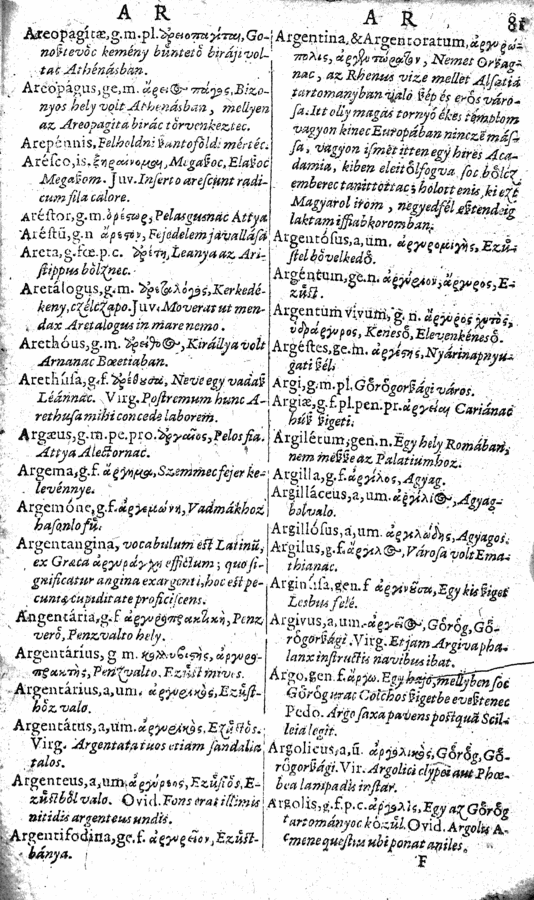 A R
Areopagitæ, g.m.pl. ἀρειοπαγίται, Go-
noſztevöc kemény büntetö biráji vol-
tac Athénásban.
Areopagus, ge, m. ἄρειος πάγος, Bizo-
nyos hely volt Athenásban, mellyen
az Areopagita birác törvenkeztec.
Arepennis, Felholdni ſzantofoldi mértéc.
Arésco, is. ξηραίνομαι, Megaſzoc, Elaſzoc
Megaſzom. Juv. Inserto areſcunt radi-
cum fila calore.
Aréstor, g.m. ἀρέστωρ, Pelasgusnac Attya
Aréstū, g.n ἄρεστον, Fejedelem javallása
Areta, g.fœ.p.c. ἀρέτη, Leanya az Ari-
ſtippus bölznec.
Aretálogus, g.m. ἀρεταλόγος, Kerkedé-
keny, czélczapo. Juv. Moverat ut men-
dax Aretalogus in mare nemo.
Arethóus, g.m. ἀρέϊθος, Királlya volt
Arnanac Bœetiaban.
Arethúsa, g.f. ἀρέθυσα, Neve egy vadaſz
Léánnac. Virg. Poſtremum hunc A-
rethusa mihi concede laborem.
Argæus, g.m. pe.pro. ἀργαῖος, Pelos fia.
Attya Alectornac.
Argema, g.f. ἄργημα, Szemmec fejer ke-
levénnye.
Argemóne, g.f. ἀργεμώνη, Vadmákhoz
haſonlo fű.
Argentangina, vocabulum eſt Latinū,
ex Græca ἀργυράγχη effictum; quo ſi-
gnificatur angina ex argenti, hoc eſt pe-
cuniæ cupiditate proficiſcens.
Argentária, g.f ἀργυροπρακτικὴ, Penz
verö, Penz valto hely.
Argentárius, g m. κολλυβιστὴς, ἀργυρο-
πρακτὴς, Penz valto. Ezüſt mives.
Argentárius, a, um. ἀργυρικὸς, Ezüſt-
höz valo.
Argentátus, a, um. ἀργυρικὸς, Ezüſtös.
Virg. Argentata tuos etiam sandalia
talos.
Argenteus, a, um, ἀργύρεος, Ezüſtös, E-
züſtböl valo. Ovid. Fons erat illimis
nitidis argenteus undis.
Argentifodina, ge.f. ἀργυρεῖον, Ezüſt-
bánya.
A R 81
Argentina, & Argentoratum, ἀργυρώ-
πολις, ἀργυτώρατον, Nemet Orſzag-
nac, az Rhenus vize mellet Alſatia
tartomanyban valo ſzép es erős váro-
ſa. Itt olly magas tornyo ékes templom
vagyon kinec Europában nincz mé máſ-
ſa, vagyon iſmét itten egy hires Aca-
damia, kiben eleitölfogva ſoc bölcz
emberec tanittottac; holott en is, ki ezt
Magyarol irom, negyedfél eſztendeig
laktam iffiabkoromban.
Argentósus, a, um. ἀργυρομιγὴς, Ezü-
ſtel bövelkedö.
Argéntum, ge.n. ἀργύριον, ἄργυρος, E-
züſt.
Argentum vivum, g. n. ἄργυρος χυτὸς,
υδράργυρος, Kenesö, Elevenkénesö.
Argéstes, ge.m. ἀργέστης, Nyárinapnyu-
gati ſzél.
Argi, g.m.pl. Görögorſzági város.
Argiæ, g.f.pl.pen.pr. ἀργείαι Cariánac
húſz ſzigeti.
Argilétum, gen.n. Egy hely Romában,
nem meſſze az Palatiumhoz.
Argilla, g.f. ἄργιλος, Agyag.
Argilláceus, a, um. ἀργίλιος, Agyag-
bol valo.
Argillósus, a, um. ἀργιλώδης, Agyagos.
Argilus, g.f. ἄργιλος, Városa volt Ema-
thianac.
Arginúsa, gen. f ἀργινοῦσα, Egy kis ſziget
Lesbus felé.
Argivus, a, um. ἀργεῖος, Görög, Gö-
rögorſzági. Virg. Et jam Argiva pha-
lanx inſtructis navibus ibat.
Argo, gen.f. ἄργω. Egy hajo, mellyben ſoc
Görög urac Colchos ſzigetbe eveſztenec
Pedo. Argo saxa pavens poſtquā Scil-
leia legit.
Argolicus, a, ū. ἀργολικὸς, Görög, Gö-
rögorſzági. Vir. Argolici clypei aut Phœ-
beæ lampadis inſtar.
Argolis, g.f.p.c. ἀργολὶς, Egy az Görög
tartományoc közül. Ovid. Argolis A-
cmene queſtus ubi ponat aniles.
F